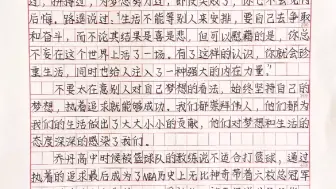 过，拼搏过，为梦想努力过，即使失败了，你也不会无内
后悔。路遥说过，"生活不能等别人来安排，要自己去争取
和奋斗，而不论其结果是喜是悲，但可以慰藉的是，你总
不妄在这个世界上活了一场，有了这样的认识，你就会珍
重生活，同时也给人注入了一种强大的内在力量。"
不要太在意别人对自己梦想的看法，始终坚持自己的
梦想，执着追求就能够成功。我们都崇拜伟人，他们都为
我们的生活做出了大大小小的贡献，他们对梦想和生活的
态度深深的感染了我们。
乔丹高中时候被篮球队的教练说不适合打篮球，通过
执着的追求最后成为了NBA历史上无比神奇带着六枚总冠军